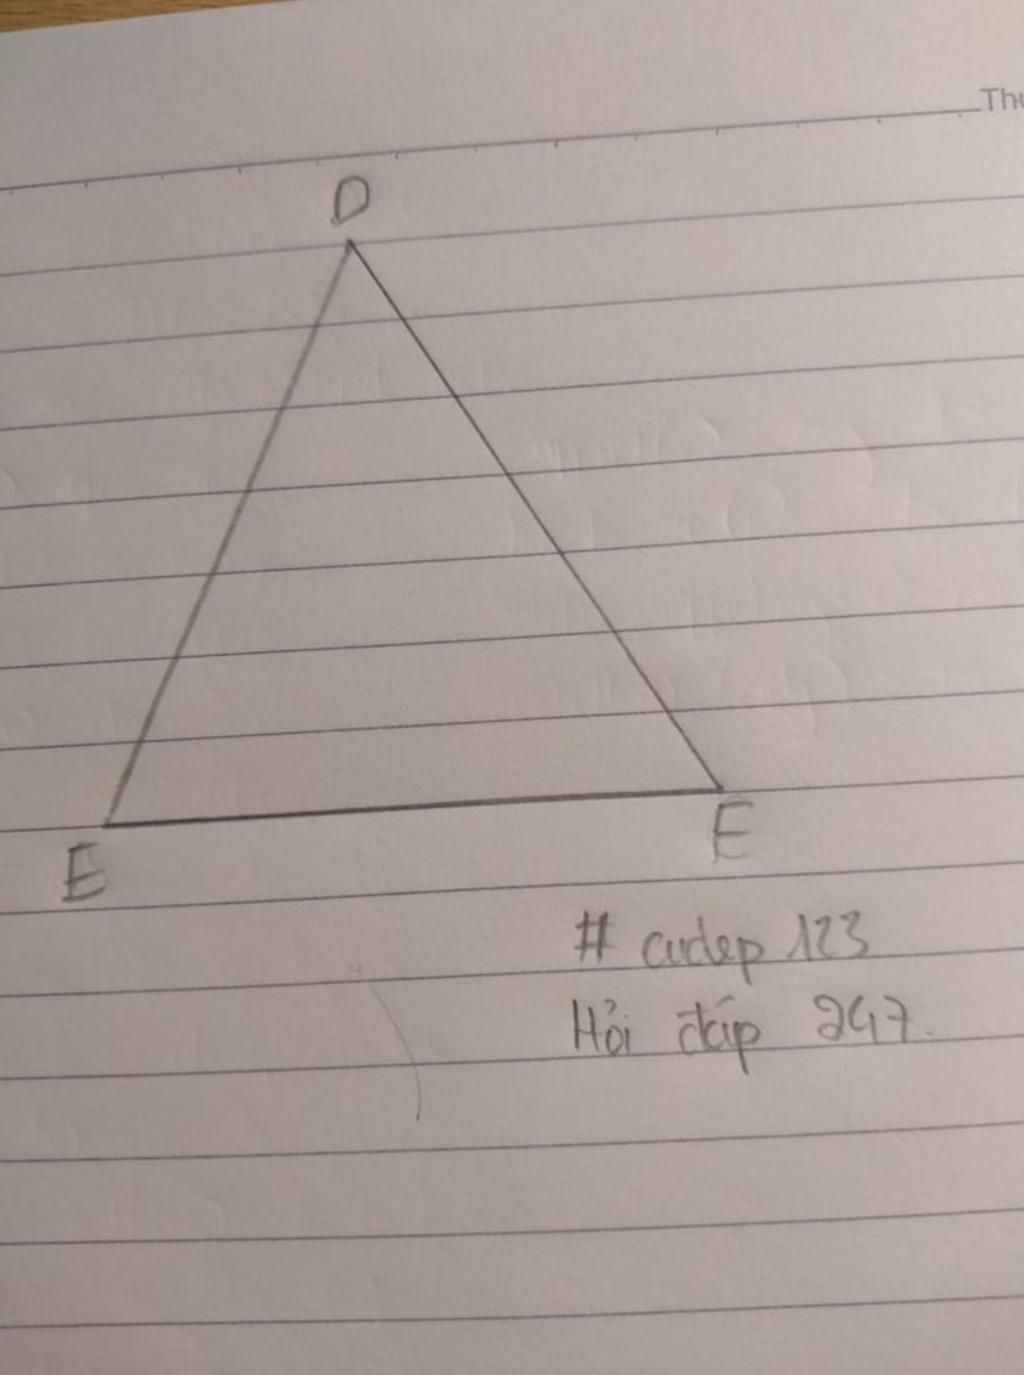 D
E
F
# cudep 123
Hỏi đáp 247.